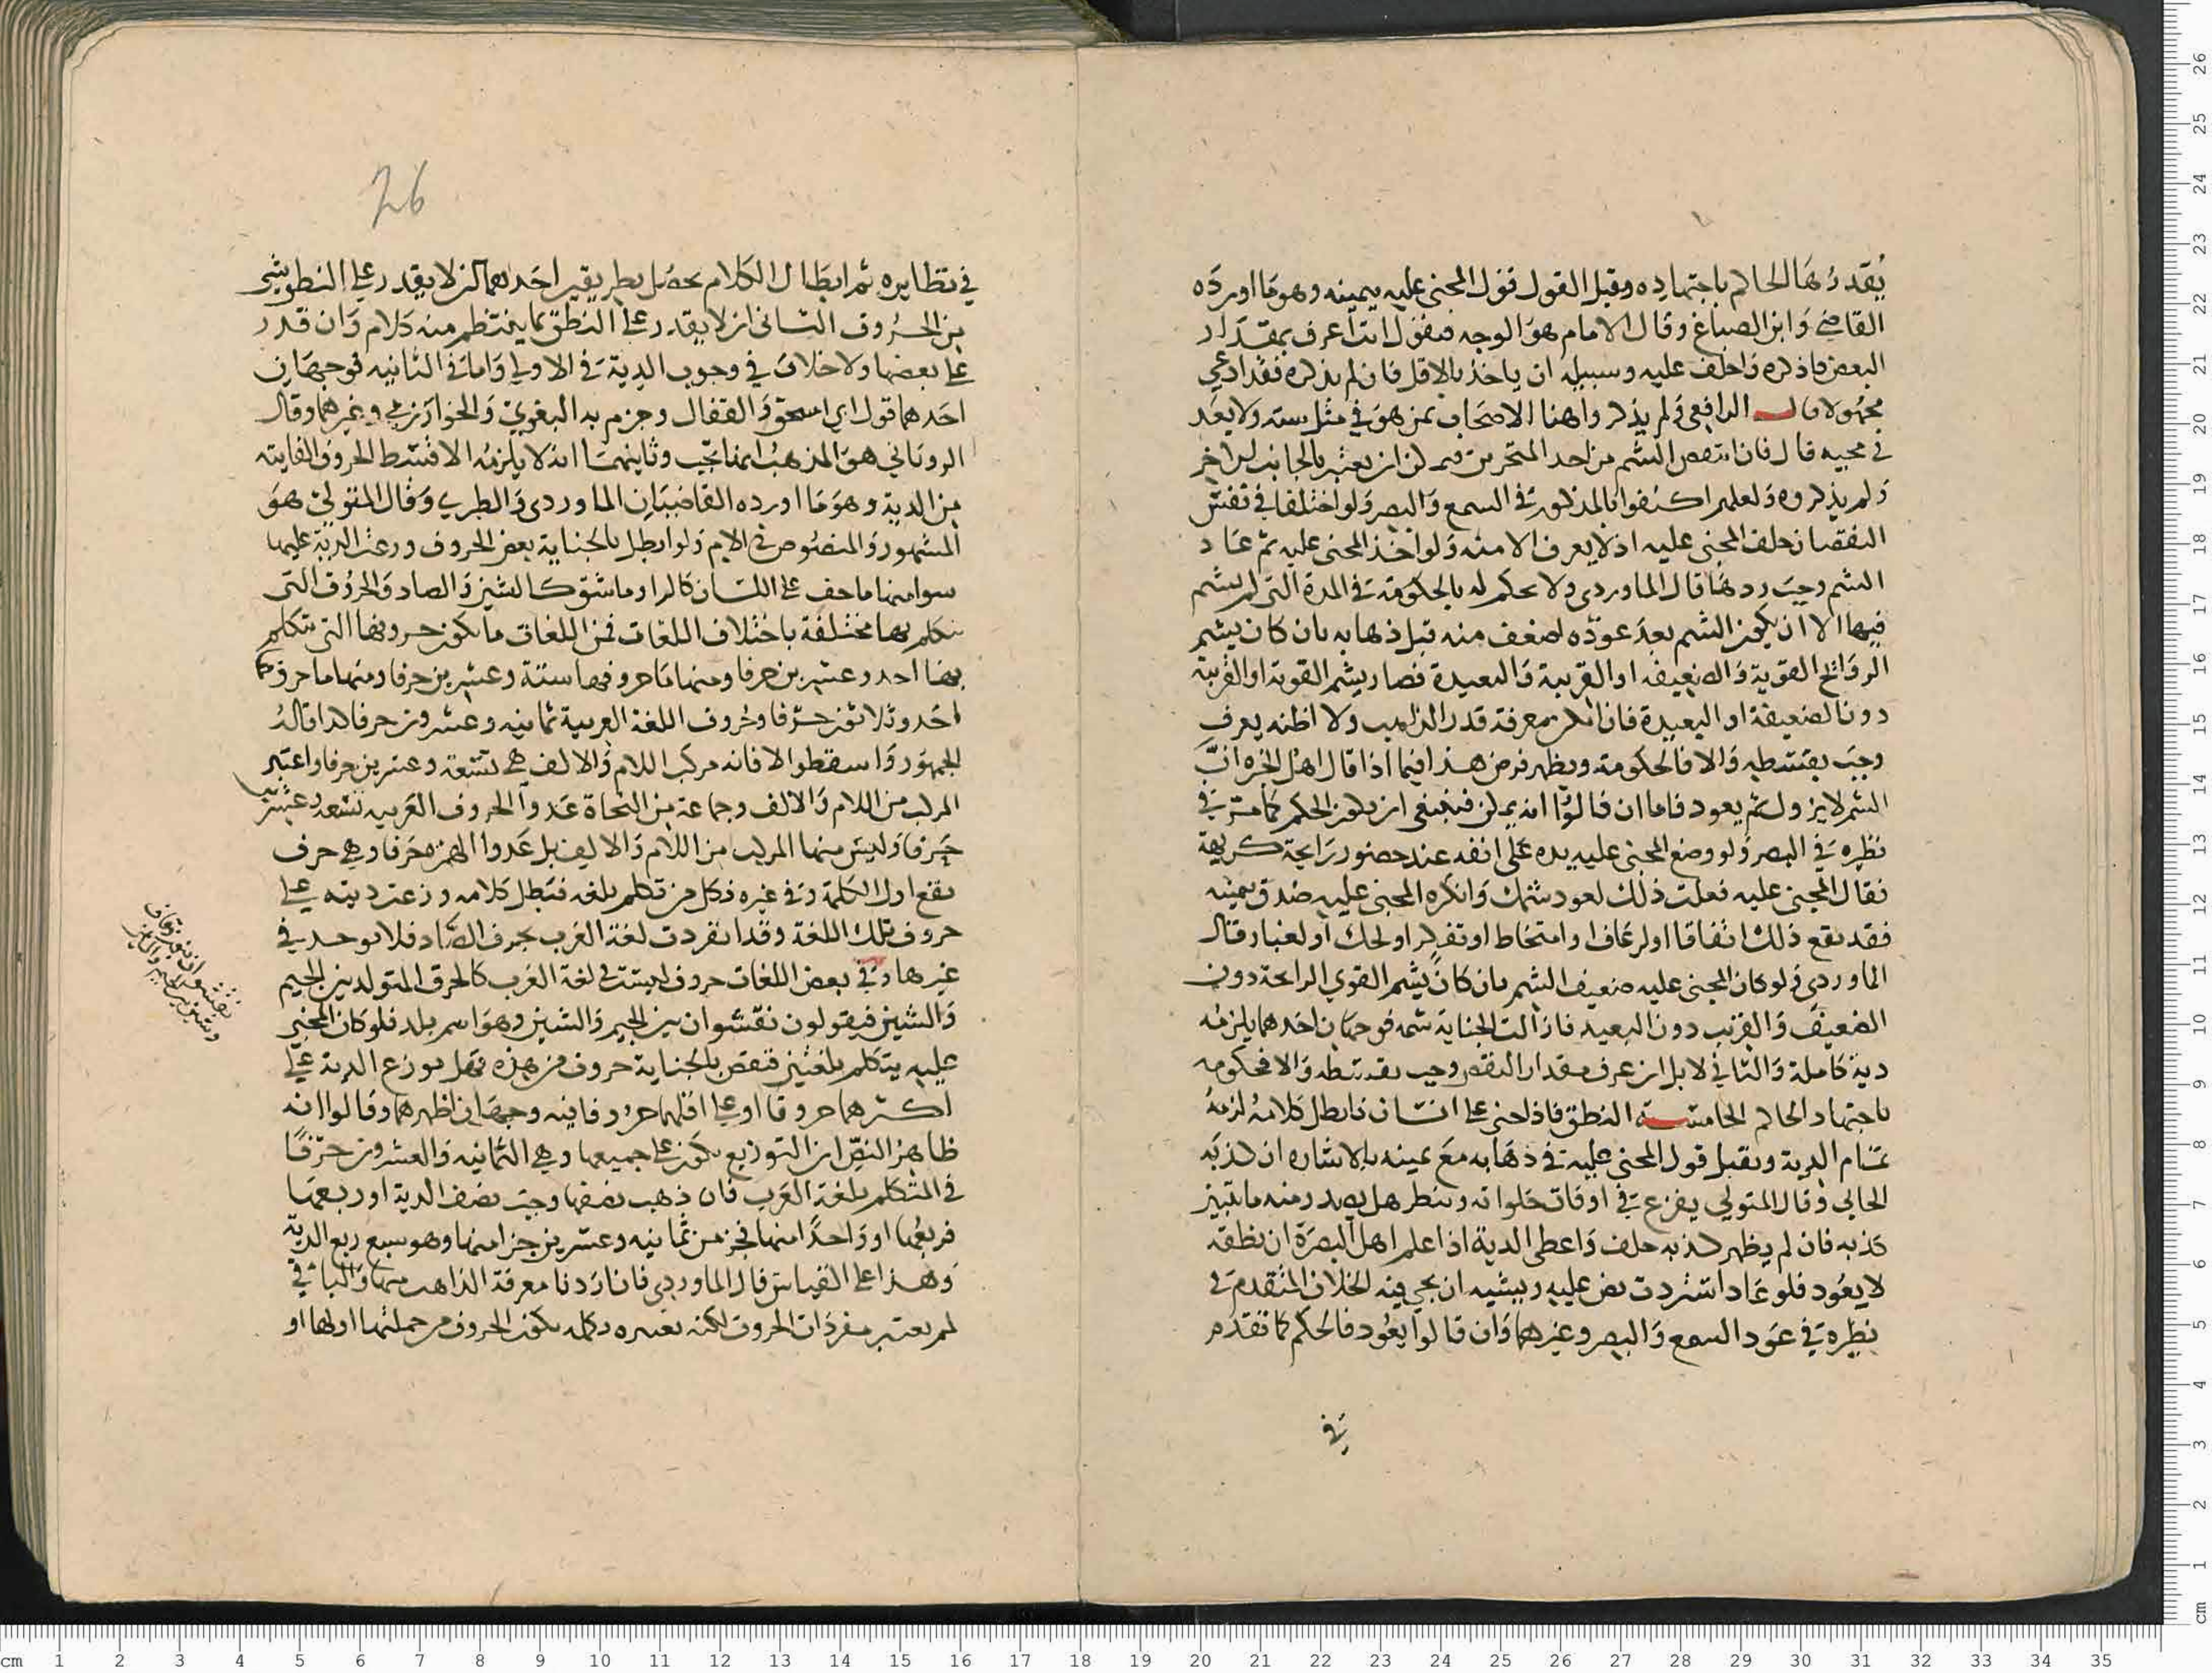 يُقدرُها الحاكم باجتهاده وقبل القول قول المجنى عليه بيمينه وهو ما اورده
القاضي وابن الصباغ وقال الامام هو الوجه فيقول انت اعرف بمقدار
البعض فاذكره واحلف عليه وسبيله ان ياخذ بالاقل فان لم يذكره فقد ادعي
مجهولا قال الرافعي ولم يذكروا هنا الامتحان بمن هو في مثل سنه ولا يبعد
في مجيه قال فان انتقص الشم من احد المنخرين فيمكن ان يعتبر بالجانب الاخر
ولم يذكروه ولعلهم اكتفوا بالمذكور في السمع والبصر ولو اختلفا في نفس
النقصان حلف المجنى عليه اذ لا يعرف الا منه ولو اخذ المجنى عليه ثم عاد
الشم وجب ردها قال الماوردي ولا يحكم له بالحكومة في المدة التي لم يشم
فيها الا ان يكون الشم بعد عوده اضعف منه قبل ذهابه بان كان يشم
الروائح القوية والضعيفه او القريبة والبعيدة فصار يشم القوية او القريبة
دون الضعيفة او البعيدة فان امكن معرفة قدر الذاهب ولا اظنه يعرف
وجب بقسطه والا فالحكومة ويظهر فرض هذا فيما اذا قال اهل الخبره ان
الشم لا يزول ثم يعود فاما ان قالوا انه يمكن فينبغي ان يكون الحكم كما مر في
نظره في البصر ولو وضع المجنى عليه يده على انفه عند حضور رايحة كريهة
فقال المجنى عليه فعلت ذلك لعود شمك وانكره المجنى عليه صدق بيمينه
فقد يقع ذلك اتفاقا او لرعاف او امتخاط او تفكر او لحك او لغبار وقال
الماوردي ولو كان المجنى عليه ضعيف الشم بان كان يشم القوي الرايحة دون
الضعيف والقريب دون البعيد فازالت الجناية شمه فوجهان احدهما يلزمه
دية كاملة والثاني لا بل ان عرف مقدار النقص وجب بقسطه والا فحكومه
باجتهاد الحاكم الخامسة النطق فاذا جنى على انسان فابطل كلامه لزمه
تمام الدية ويقبل قول المجنى عليه في ذهابه مع يمينه بالاشاره ان كذبه
الجاني وقال المتولي يفزع في اوقات خلواته وينظر هل يصدر منه ما يبين
كذبه فان لم يظهر كذبه حلف واعطى الدية اذا علم اهل البصرة ان نطقه
لا يعود فلو عاد استردت نص عليه ويشبه ان يجي فيه الخلاف المتقدم في
نظره في عود السمع والبصر وغيرهما وان قالوا يعود فالحكم كما تقدم
في
26
في نظايره ثم ابطال الكلام يحصل بطريقين احدهما ان لا يقدر على النطق بشي
من الحروف الثاني ان لا يقدر على النطق بما ينتظم منه كلام وان قدر
على بعضها ولا خلاف في وجوب الدية في الاولى واما في الثانيه فوجهان
احدهما قول ابي اسحق والقفال وجزم به البغوي والخوارزمي وغيرهما وقال
الروياني هو المذهب انها تجب وثانيهما انه لا يلزمه الا قسط الحروف الفايته
من الدية وهو ما اورده القاضيان الماوردي والطبري وقال المتولي هو
المشهور والمنصوص في الام ولو ابطل بالجناية بعض الحروف وزعت الدية عليها
سوا منها ما خف على اللسان كالرا وما شق كالشين والصاد والحروف التي
يتكلم بها مختلفة باختلاف اللغات فمن اللغات ما يكون حروفها التي يتكلم
بها احد وعشرين حرفا ومنها ما حروفها ستة وعشرين حرفا ومنها ما حروفها
احد وثلاثون حرفا وحروف اللغة العربية ثمانيه وعشرون حرفا كذا قاله
الجمهور واسقطوا لا فانه مركب اللام والالف هي تسعة وعشرين حرفا واعتبر
المركب من اللام والالف وجماعة من النحاة عدوا الحروف العربيه تسعه وعشرين
حرفا وليس منها المركب من اللام والالف بل عدوا الهمزه حرفا وهي حرف
يقع اول الكلمة وفي غيره فكل من تكلم بلغه فتبطل كلامه وزعت ديته على
حروف تلك اللغة وقد انفردت لغة العرب بحرف الضاد فلا يوجد في
غيرها وفي بعض اللغات حروف ليست في لغة العرب كالحرف المتولد بين الجيم
والشين فيقولون نقشوان بين الجيم والشين وهو اسم بلد فلو كان المجنى
عليه يتكلم بلغتين فنقص بالجناية حروف من هذه فهل يوزع الدية على
اكثرهما حروفا او على اقلهما حروفا فيه وجهان اظهرهما وقالوا انه
ظاهر النص ان التوزيع يكون على جميعها وهي الثمانيه والعشرون حرفا
في المتكلم بلغة العرب فان ذهب نصفها وجب نصف الدية او ربعها
فربعها او واحدا منها فجز من ثمانيه وعشرين جزا منها وهو سبع ربع الدية
وهذا على القياس قال الماوردي فان اردنا معرفة الذاهب منها والباقي
لم يعتبر مفردات الحروف لكنه نعتبره بكلمه يكون الحروف من جملتها اولها او